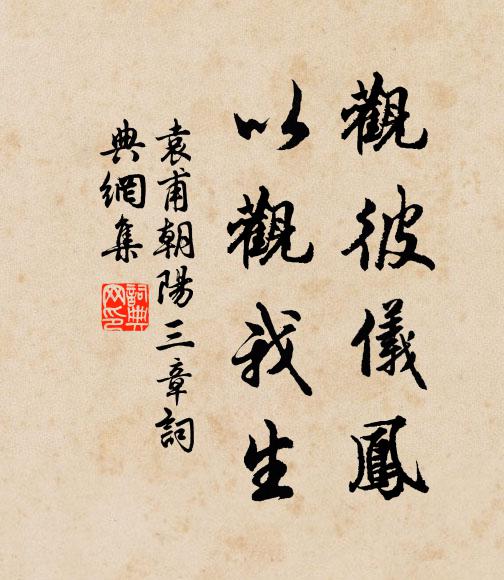 觀彼儀鳳
以觀我生
袁甫朝陽三章詞
典網集
詞典
网印